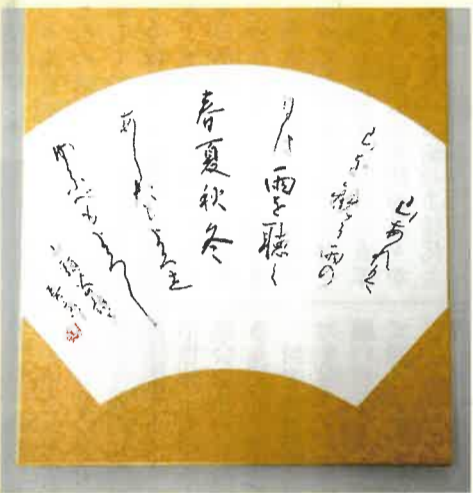 山あれば
山を観る雨の
日は雨を聴く
春夏秋冬
あしたもよろし
ゆふべもよろし